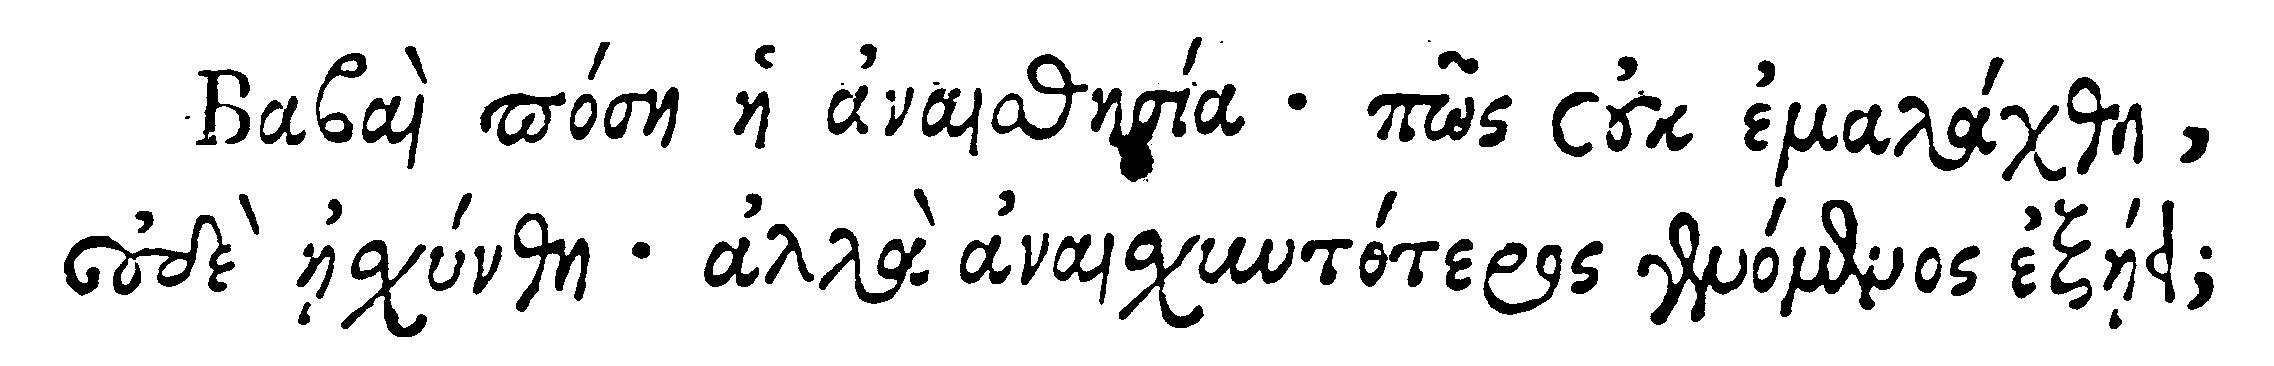 Βαβαὶ πόση ἡ ἀναισθησία · πῶς οὐκ ἐμαλάχθη,
οὐδὲ ᾐσχύνθη · ἀλλὰ ἀναισχυντότερος γενόμενος ἐξῄει;